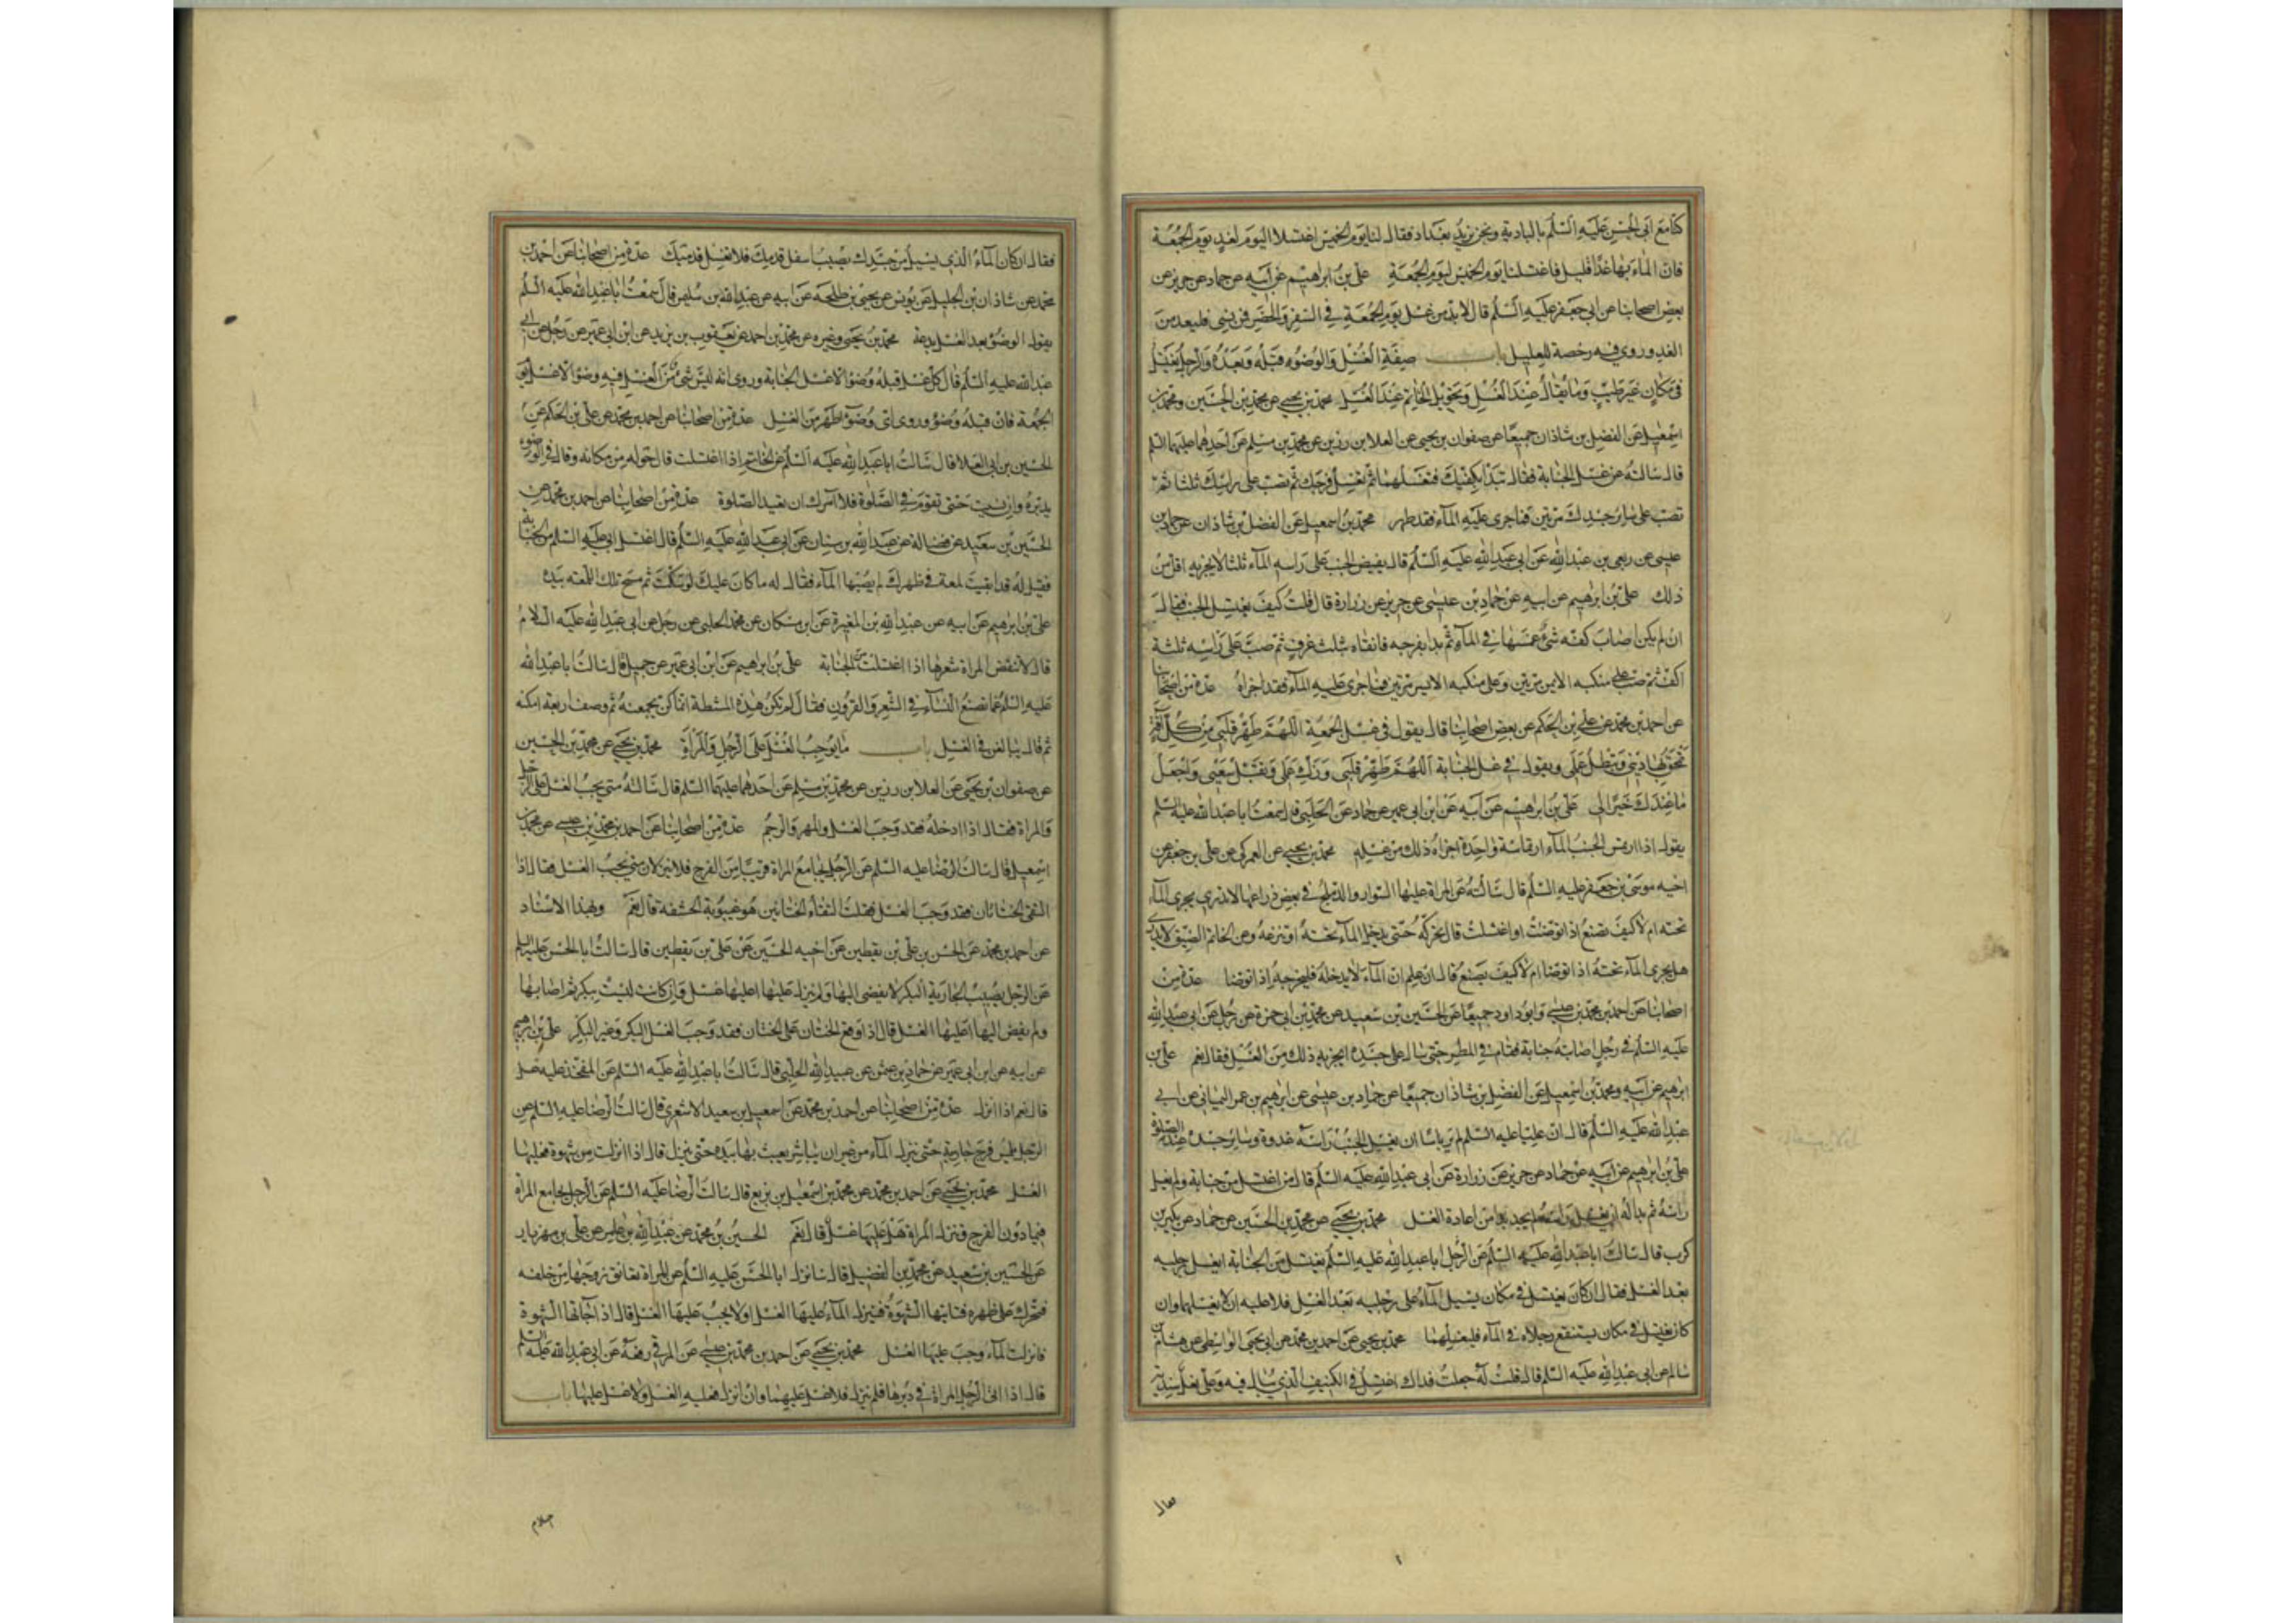 كنا مع ابى الحسن عليه السلم بالبادية ونحن نريد بغداد فقال لنا يوم الخميس اغتسلا اليوم لغد يوم الجمعة
فان الماء بها غدا قليل فاغتسلنا يوم الخميس ليوم الجمعة على بن ابرهيم عن ابيه عن حماد عن حريز عن
بعض اصحابنا عن ابى جعفر عليه السلم قال لابد من غسل يوم الجمعة فى السفر والحضر فمن نسى فليعد من
الغد وروى فيه رخصة للعليل باب صفة الغسل والوضوء قبله وبعده والرجل يغتسل
فى مكان غير طيب وما يقال عند الغسل وتحويل الخاتم عند الغسل محمد بن يحيى عن محمد بن الحسين ومحمد بن
اسمعيل عن الفضل بن شاذان جميعا عن صفوان بن يحيى عن العلا بن رزين عن محمد بن مسلم عن احدهما عليهما السلم
قال سالته عن غسل الجنابة فقال تبدا بكفيك فتغسلهما ثم تغسل فرجك ثم تصب على راسك ثلثا ثم
تصب على سائر جسدك مرتين فما جرى عليه الماء فقد طهر محمد بن اسمعيل عن الفضل بن شاذان عن حماد بن
عيسى عن ربعى بن عبد الله عن ابى عبد الله عليه السلم قال يفيض الجنب على راسه الماء ثلثا لا يجزيه اقل من
ذلك على بن ابرهيم عن ابيه عن حماد بن عيسى عن حريز عن زرارة قال قلت كيف يغتسل الجنب فقال
ان لم يكن اصاب كفه شئ غمسها فى الماء ثم بدا بفرجه فانقاه بثلث غرف ثم صب على راسه ثلثة
اكف ثم صب على منكبه الايمن مرتين وعلى منكبه الايسر مرتين فما جرى عليه الماء فقد اجزاه عدة من اصحابنا
عن احمد بن محمد عن على بن الحكم عن بعض اصحابنا قال يقول فى غسل الجمعة اللهم طهر قلبى من كل آفة
تمحق بها دينى وتبطل عملى ويقول فى غسل الجنابة اللهم طهر قلبى وزك عملى وتقبل سعيى واجعل
ما عندك خيرا لى على بن ابرهيم عن ابيه عن ابن ابى عمير عن حماد عن الحلبى قال سمعت ابا عبد الله عليه السلم
يقول اذا ارتمس الجنب الماء ارتماسة واحدة اجزاه ذلك من غسله محمد بن يحيى عن العمركى عن على بن جعفر عن
اخيه موسى بن جعفر عليه السلم قال سالته عن المراة عليها السوار والدملج فى بعض ذراعها لا تدرى يجرى الماء
تحته ام لا كيف تصنع اذا توضئت او اغتسلت قال تحركه حتى يدخل الماء تحته او تنزعه وعن الخاتم الضيق لا يدرى
هل يجرى الماء تحته اذا توضا ام لا كيف يصنع قال ان علم ان الماء لا يدخله فليخرجه اذا توضا عدة من
اصحابنا عن احمد بن محمد بن عيسى وابو داود جميعا عن الحسين بن سعيد عن محمد بن ابى حمزة عن رجل عن ابى عبد الله
عليه السلم فى رجل اصابته جنابة فقام فى المطر حتى سال على جسده ايجزيه ذلك من الغسل فقال نعم على بن
ابرهيم عن ابيه ومحمد بن اسمعيل عن الفضل بن شاذان جميعا عن حماد بن عيسى عن ابرهيم بن عمر اليمانى عن ابى
عبد الله عليه السلم قال ان عليا عليه السلم لم ير باسا ان يغسل الجنب راسه غدوة وسائر جسده عند الصلوة
على بن ابرهيم عن ابيه عن حماد عن حريز عن زرارة عن ابى عبد الله عليه السلم قال من اغتسل من جنابة ولم يغسل
راسه ثم بدا له ان يغسل راسه لم يجد بدا من اعادة الغسل محمد بن يحيى عن محمد بن الحسين عن حماد عن بكر بن
كرب قال سالت ابا عبد الله عليه السلم عن الرجل ابا عبد الله عليه السلم يغتسل من الجنابة ايغسل رجليه
بعد الغسل فقال ان كان يغتسل فى مكان يسيل الماء على رجليه بعد الغسل فلا عليه ان لا يغسلهما وان
كان يغتسل فى مكان يستنقع رجلاه فى الماء فليغسلهما محمد بن يحيى عن احمد بن محمد عن ابى يحيى الواسطى عن هشام بن
سالم عن ابى عبد الله عليه السلم قال قلت له جعلت فداك اغتسل فى الكنيف الذى يبال فيه وعلى نعل سندية
فقال
فقال ان كان الماء الذى يسيل من جسدك يصيب اسفل قدميك فلا تغسل قدميك عدة من اصحابنا عن احمد بن
محمد عن شاذان بن الخليل عن يونس عن يحيى بن طلحة عن ابيه عن عبد الله بن سليمن قال سمعت ابا عبد الله عليه السلم
يقول الوضوء بعد الغسل بدعة محمد بن يحيى وغيره عن محمد بن احمد عن يعقوب بن يزيد عن ابن ابى عمير عن رجل عن ابى
عبد الله عليه السلم قال كل غسل قبله وضوء الا غسل الجنابة وروى انه ليس شئ من الغسل فيه وضوء الا غسل يوم
الجمعة فان قبله وضوء وروى اى وضوء اطهر من الغسل عدة من اصحابنا عن احمد بن محمد عن على بن الحكم عن
الحسين بن ابى العلا قال سالت ابا عبد الله عليه السلم عن الخاتم اذا اغتسلت قال حوله من مكانه وقال فى الوضوء
يديره وان نسيت حتى تقوم فى الصلوة فلا آمرك ان تعيد الصلوة عدة من اصحابنا عن احمد بن محمد عن
الحسين بن سعيد عن فضالة عن عبد الله بن سنان عن ابى عبد الله عليه السلم قال اغتسل ابى عليه السلم من الجنابة
فقيل له قد ابقيت لمعة فى ظهرك لم يصبها الماء فقال له ما كان عليك لو سكت ثم مسح تلك اللمعة بيده
على بن ابرهيم عن ابيه عن عبد الله بن المغيرة عن ابن مسكان عن محمد الحلبى عن رجل عن ابى عبد الله عليه السلام
قال لا تنقض المراة شعرها اذا اغتسلت من الجنابة على بن ابرهيم عن ابن ابى عمير عن جميل قال سالت ابا عبد الله
عليه السلم عما تصنع النساء فى الشعر والقرون فقال لم تكن هذه المشطة انما كن يجمعنه ثم وصف اربعة امكنة
ثم قال يبالغن فى الغسل باب ما يوجب الغسل على الرجل والمراة محمد بن يحيى عن محمد بن الحسين
عن صفوان بن يحيى عن العلا بن رزين عن محمد بن مسلم عن احدهما عليهما السلم قال سالته متى يجب الغسل على الرجل
والمراة فقال اذا ادخله فقد وجب الغسل والمهر والرجم عدة من اصحابنا عن احمد بن محمد بن عيسى عن محمد بن
اسمعيل قال سالت الرضا عليه السلم عن الرجل يجامع المراة قريبا من الفرج فلا ينزلان متى يجب الغسل فقال اذا
التقى الختانان فقد وجب الغسل فقلت التقاء الختانين هو غيبوبة الحشفة قال نعم وبهذا الاسناد
عن احمد بن محمد عن الحسن بن على بن يقطين عن اخيه الحسين عن على بن يقطين قال سالت ابا الحسن عليه السلم
عن الرجل يصيب الجارية البكر لا يفضى اليها ولم ينزل عليها اعليها غسل وان كانت ليست ببكر ثم اصابها
ولم يفض اليها اعليها الغسل قال اذا وقع الختان على الختان فقد وجب الغسل البكر وغير البكر على بن ابرهيم
عن ابيه عن ابن ابى عمير عن حماد بن عثمن عن عبيد الله الحلبى قال سالت ابا عبد الله عليه السلم عن المفخذ عليه غسل
قال نعم اذا انزل عدة من اصحابنا عن احمد بن محمد عن اسمعيل بن سعيد الاشعرى قال سالت الرضا عليه السلم عن
الرجل يلمس فرج جاريته حتى تنزل الماء من غير ان يباشر يعبث بها بيده حتى تنزل قال اذا انزلت من شهوة فعليها
الغسل محمد بن يحيى عن احمد بن محمد عن محمد بن اسمعيل بن بزيع قال سالت الرضا عليه السلم عن الرجل يجامع المراة
فيما دون الفرج وتنزل المراة هل عليها غسل قال نعم الحسين بن محمد عن عبد الله بن عامر عن على بن مهزيار
عن الحسين بن سعيد عن محمد بن الفضيل قال سالت ابا الحسن عليه السلم عن المراة تعانق زوجها من خلفه
فتحرك على ظهره فتاتيها الشهوة فتنزل الماء عليها الغسل او لا يجب عليها الغسل قال اذا جاءتها الشهوة
فانزلت الماء وجب عليها الغسل محمد بن يحيى عن احمد بن محمد بن عيسى عن البرقى رفعه عن ابى عبد الله عليه السلم
قال اذا اتى الرجل المراة فى دبرها فلم ينزل فلا غسل عليهما وان انزل فعليه الغسل ولا غسل عليها باب
احتلام